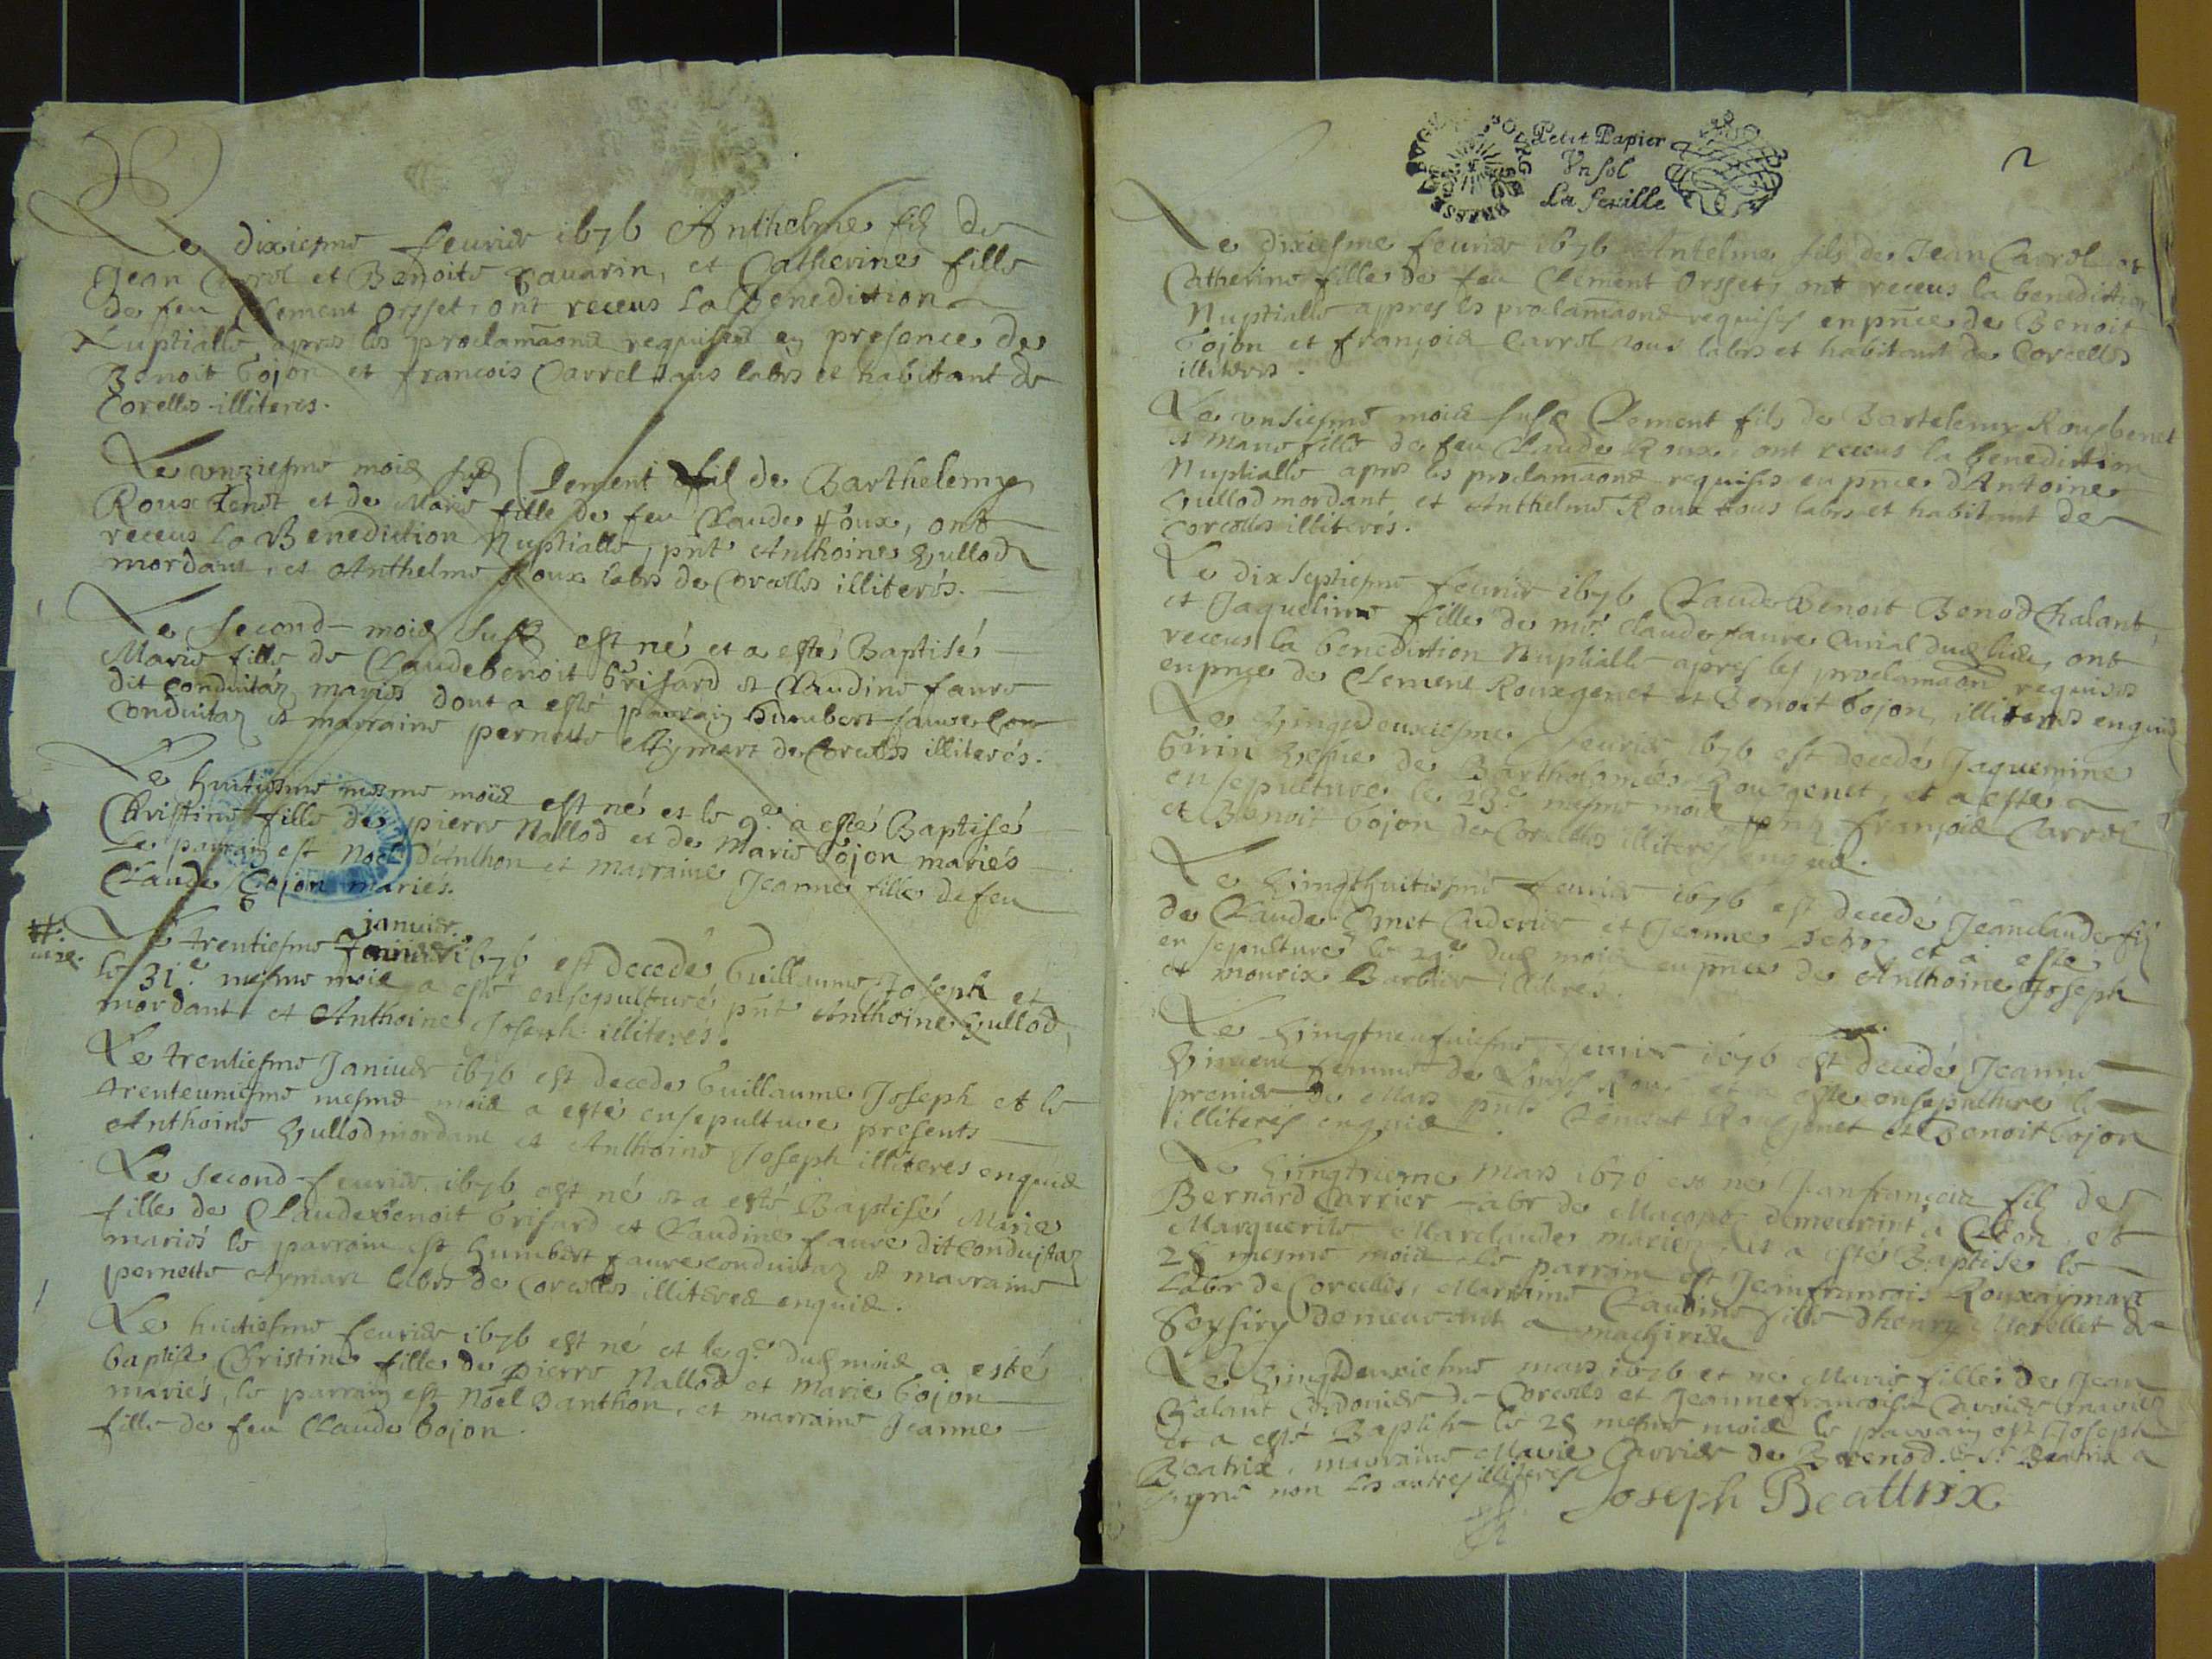 Le dixiesme feurier 1676 Anthelme filz de
Jean Carrel et Benoite Sauarin, et Catherine fille
de feu Clement Orsset, ont receus la Benediction
Nuptialle apres les proclamaons requises en presence de
Benoit Gojon et francois Carrel tous labrs et habitant de
Corcelles illiteres.
Le vnziesme mois susd Clement filz de Barthelemy
Roux Genet et de Marie fille de feu Claude Roux, ont
receus la Benediction Nuptialle, pnt Anthoine Gullod
mordant, et Anthelme Roux labrs de Corcelles illiterés.
Le second mois susd est né et a esté Baptisé
Marie fille de Claudebenoit Grisard et Claudine faure
dit conduitaz mariés dont a esté parrain humbert faure
Conduitaz et marraine pernette Aymarz de Corcelles illiterés.
Le huitiesme mesme mois est né et le 9e a esté Baptisé
Christine fille de pierre Nallod et de Marie Gojon mariés
Le parrain est Noel Danthon et marraine Jeanne fille de feu
Claude Gojon mariés.
januier
Le trentiesme 1676 est decedé Guillaume Joseph et
le 31e mesme mois a esté ensepulturé pnt Anthoine Gullod
mordant et Anthoine Joseph illiterés.
Le trentiesme Januier 1676 est decede Guillaume Joseph et le
trenteuniesme mesme mois a esté ensepulture presents
Anthoine Gullod mordant et Anthoine Joseph illiteres enquis
Le second feurier 1676 est né et a esté Baptisé Marie
fille de Claudebenoit Grisard et Claudine faure dit Conduitaz
mariés le parrain est humbert faure conduitaz et marraine
pernette Aymarz labrs de Corcelles illiteres enquis.
Le huitiesme feurier 1676 est né et le 9e dud mois a esté
baptise Christine fille de pierre Nallod et Marie Gojon
mariés, le parrain est Noel Danthon, et marraine Jeanne
fille de feu Claude Gojon.
Petit Papier
Vn sol
La feuille
2
Le dixiesme feurier 1676 Antelme fils de Jean Carrel et
Catherine fille de feu Clement Orsset, ont receus la benediction
Nuptialle appres les proclamaons requises en pnce de Benoit
Gojon et françois Carrel tous labrs et habitant de Corcelles
illiteres.
Le vnsiesme mois susd Clement fils de Bartelemy Rouxgenet
et Marie fille de feu Claude Roux, ont receus la benediction
Nuptialle apres les proclamaons requises en pnce d'Antoine
Gullod mordant et Anthelme Roux tous labrs et habitant de
Corcelles illiterés.
Le dixseptiesme feurier 1676 Claude Benoit Benod Chalant,
et Jaqueline fille de mre Claude faure dud lieu, ont
receus la benediction Nuptialle apres les proclamaons requises
en pnce de Clement Rouxgenet et Benoit Gojon, illiteres enquis
Le Vingtdeuxiesme feurier 1676 est decedé Jaquemine
Girin vefue de Bartholomée Rouxgenet, et a esté
ensepulturé le 23e mesme mois pnts françois Carrel
et Benoit Gojon de Corcelles illiteres enquis.
Le Vingthuitiesme feurier 1676 est decedé Jeanclaude filz
de Claude et Jeanne et a esté
ensepulturé le 29e dud mois en pnce de Anthoine Joseph
et mourix Barbier illiteres.
Le Vingtneufuiesme feurier 1676 est decedé Jeanne
femme de Roux et a esté ensepulturé le
premier de Mars pnts Clement Rouxgenet et Benoit Gojon
illiterés enquis.
Le Vingtrieme Mars 1676 est né Jeanfrançois filz de
Bernard Carrier labr de demeurant a et
Marguerite mariez, et a esté Baptise le
25 mesme mois le parrain est Jeanfrançois Rouxaymarz
labr de Corcelles, Marraine Claudine fille dhenry Morellet de
demeurant a
Le Vingtdeuxiesme mars 1676 et né Marie fille de Jean
Galant de Corcelles et Jeannefrançoise Carrier mariez
et a esté Baptise le 25 mesme mois le parrain est Joseph
Beatrix, marraine Marie Carrier de Breno​d. le sr Beatrix a
signé non les autres illiteres
Joseph Beattrix